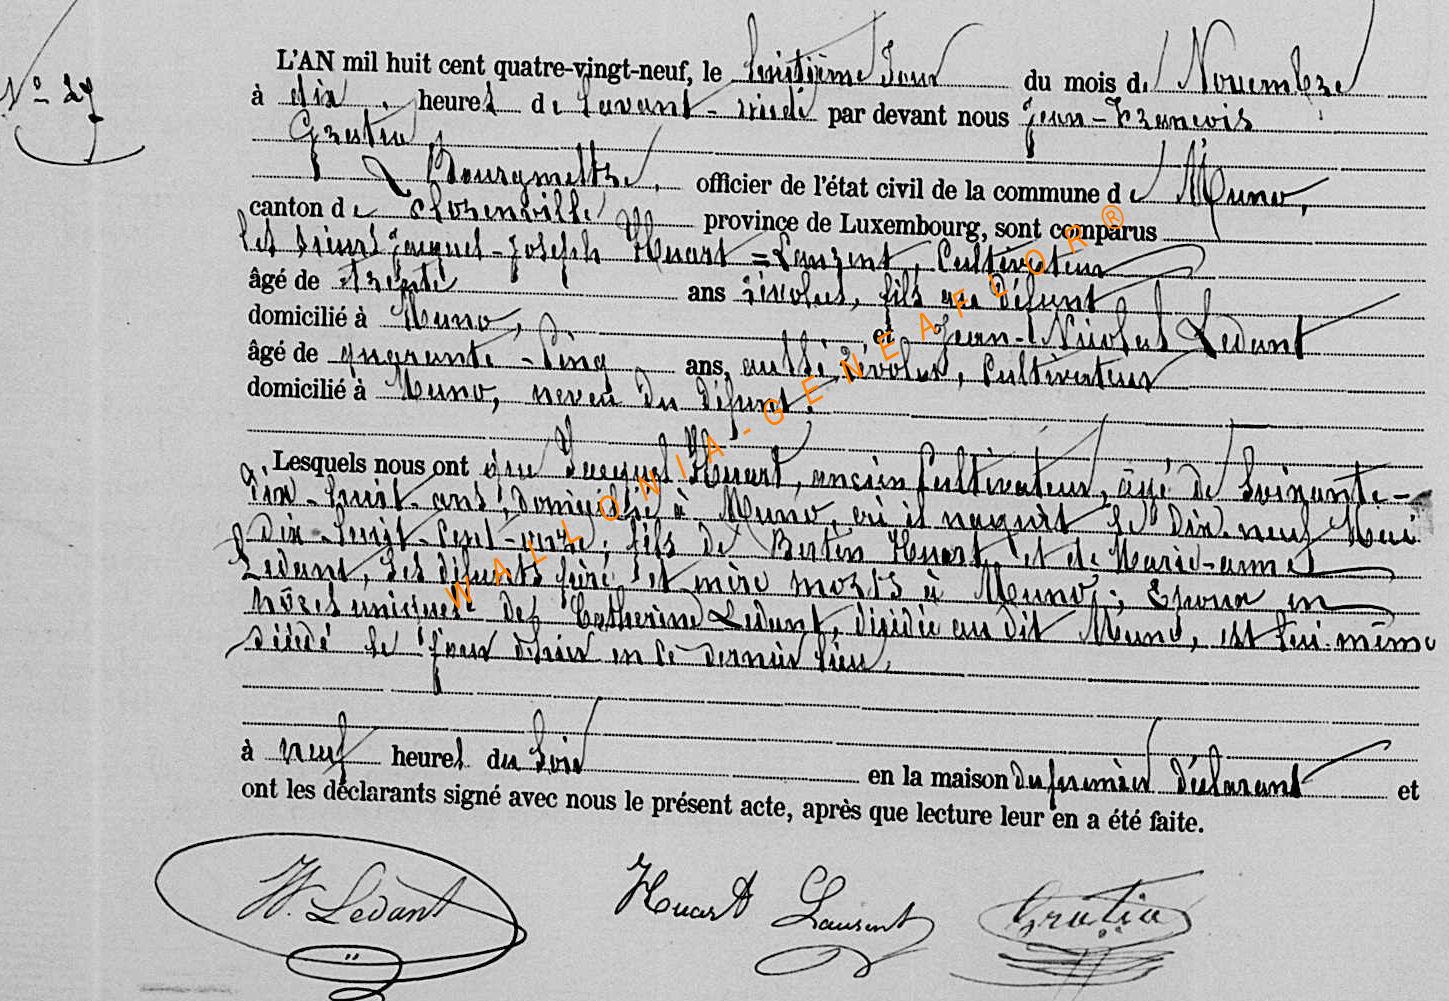 N° 27
L'AN mil huit cent quatre-vingt-neuf, le huitième Jour du mois de Novembre
à dix heures de l'avant-midi par devant nous Jean-François
Gratia
Bourgmestre, officier de l'état civil de la commune de Muno,
canton de Florenville province de Luxembourg, sont comparus
les sieurs Jacques-Joseph Huart=Laurent, Cultivateur
âgé de trente ans révolus, fils du Défunt
domicilié à Muno, et Jean-Nicolas Ledant
âgé de quarante-cinq ans, aussi révolus, Cultivateur
domicilié à Muno, neveu du Défunt.
Lesquels nous ont que Jacques Huart, ancien Cultivateur, âgé de soixante-
dix-huit ans, domicilié à Muno, où il naquit le Dix-neuf Mai
Dix-huit-cent-onze, fils de Bertin Huart et de Marie-anne
Ledant, ses défunts père et mère morts à Muno; Epoux en
nôces uniques de Catherine Ledant, décédée au dit Muno, est lui-même
décédé le jour d'hier en ce dernier lieu,
à neuf heures du soir en la maison du premier déclarant et
ont les déclarants signé avec nous le présent acte, après que lecture leur en a été faite.
N. Ledant Huart Laurent Gratia
WALLONIA-GENEAFLOR®